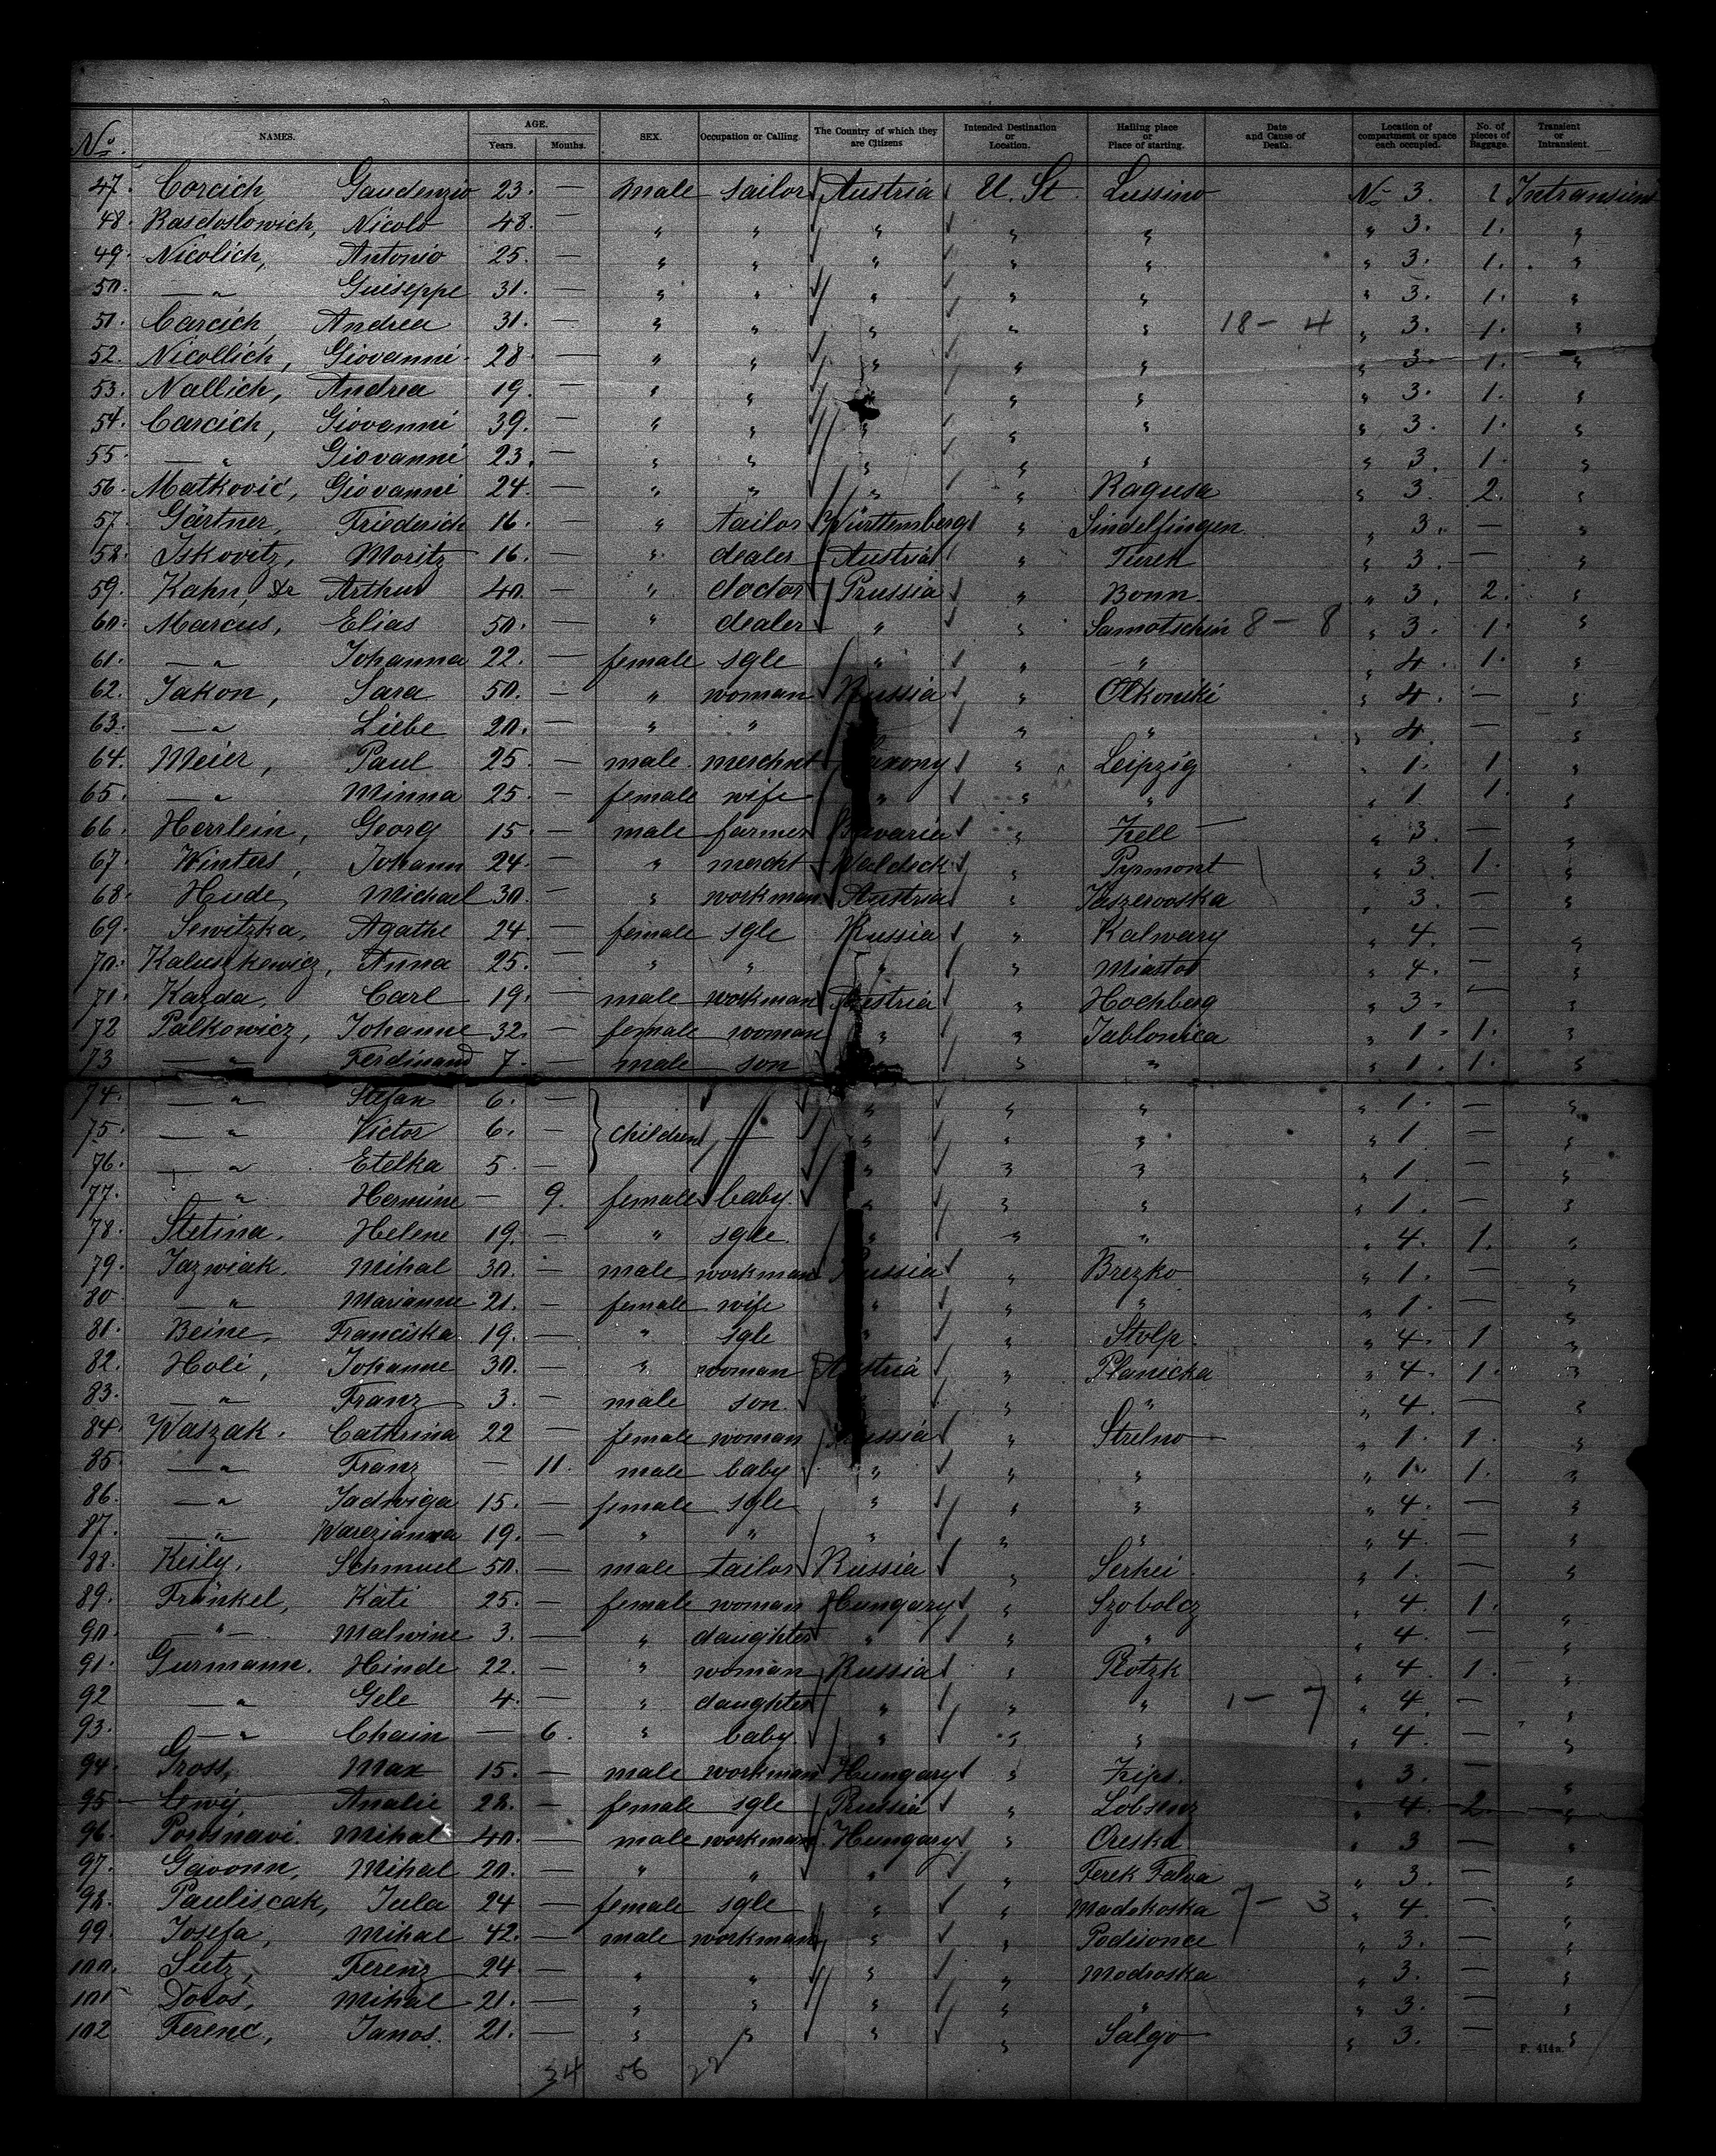 No. NAMES. AGE. Years. Months. SEX. Occupation or Calling. The Country of which they are Citizens Intended Destination or Location. Hailing place or Place of starting. Date and Cause of Death. Location of compartment or space each occupied. No. of pieces of Baggage. Transient or Intransient.
47. Corcich Gaudenzio 23. — male sailor Austria U. St Lussino No 3. 1 Intransient
48. Rasdoslowich, Nicolo 48. — " " " " " " 3. 1. "
49. Nicolich, Antonio 25. — " " " " " " 3. 1. "
50. — " Guiseppe 31. — " " " " " " 3. 1. "
51. Carcich, Andrea 31. — " " " " " 18 - 4 " 3. 1. "
52. Nicollich, Giovanni 28. — " " " " " " 3. 1. "
53. Nallich, Andrea 19. " " " " " " 3. 1. "
54. Carcich, Giovanni 39. — " " " " " " 3. 1. "
55. — " Giovanni 23. — " " " " " " 3. 1. "
56. Matković, Giovanni 24. — " " " " Ragusa " 3. 2. "
57. Gärtner, Friedrich 16. — " tailor Württemberg " Sindelfingen " 3. — "
58. Iskovitz, Moritz 16. — " dealer Austria " Turek " 3. — "
59. Kahn, Dr Arthur 40. — " doctor Prussia " Bonn " 3. 2. "
60. Marcus, Elias 50. — " dealer " " Samotschin 8 - 8 " 3. 1. "
61. — " Johanna 22. — female sgle " " — " " 4. 1. "
62. Jakon, Sara 50. — " woman Russia " Olkoniki " 4. — "
63. — " Liebe 20. — " " " " " 4. — "
64. Meier, Paul 25. — male merchnt Saxony " Leipzig " 1. 1 "
65. — " Minna 25. — female wife " " " " 1. 1. "
66. Herrlein, Georg 15. — male farmer Bavaria " Zell — " 3. — "
67. Winters, Johann 24. — " mercht Waldeck " Pyrmont " 3. 1. "
68. Hude, Michael 30. — " workman Austria " " 3. — "
69. Sewitzka, Agathe 24. — female sgle Russia " Kalwary " 4. — "
70. Kaluszkewicz, Anna 25. — " " " " Miastod " 4. — "
71. Kazda, Carl 19. — male workman Austria " Hochberg " 3. — "
72 Palkowicz, Johanne 32. — female woman " " Jablonica " 1. 1. "
73 — " Ferdinand 7. — male son " " " 1. 1. "
74. — " Stefan 6. — " " " " 1. — "
75. — " Victor 6. — children — " " " " 1. — "
76. — " Etelka 5. — " " " " 1. — "
77. — " Hermine — 9. female baby. " " " " 1. — "
78. Stetina, Helene 19. — " sgle. " " " " 4. 1. "
79. Jazwiak, Mihal 30. — male workman Russia " Brezko " 1. — "
80 — " Marianne 21. — female wife " " " " 1. — "
81. Beine, Franciska 19. — " sgle " " Stolp " 4. 1 "
82. Holi, Johanne 30. — " woman Austria " Planicka " 4. 1. "
83. — " Franz 3. — male son " " " 4. — "
84. Waszak, Cathrina 22 — female woman Russia " Strelno " 1. 1. "
85. — " Franz — 11. male baby " " " " 1. 1. "
86. — " Jadwiga 15. — female sgle " " " " 4. — "
87. — " Warerianna 19. — " " " " " " 4. — "
88. Keily, Schmuel 50. — male tailor Russia " Serhei " 1. — "
89. Fränkel, Käti 25. — female woman Hungary " Szobolcz " 4. 1. "
90. — " — Malwine 3. — " daughter " " " " 4. — "
91. Gurmann. Hinde 22. — " woman Russia " Plotzk " 4. 1. "
92 — " Gele 4. — " daughter " " " 1 - 7 " 4. — "
93. — " Chain — 6. " baby " " " " 4. — "
94. Gross, Max 15. — male workman Hungary " Zips. " 3. — "
95 Lewij, Analie 28. — female sgle Prussia " Lobsenz " 4. 2. "
96. Porosnavi. Mihal 40. — male workman Hungary " Oreska " 3 — "
97. Gavonn, Mihal 20. — " " " " Ferek Falva " 3. — "
98. Pauliscak, Jula 24 — female sgle " " Madskoska 7 - 3 " 4. — "
99. Josefa, Mihal 42. — male workman " " Podvonce " 3. — "
100. Sutz, Ferenz 24 — " " " " Modroska " 3. — "
101 Doros, Mihal 21. — " " " " " " 3. — "
102 Ferenc, Janos. 21. — " " " " Salgo " 3. — "
34 56 22
F. 414a.